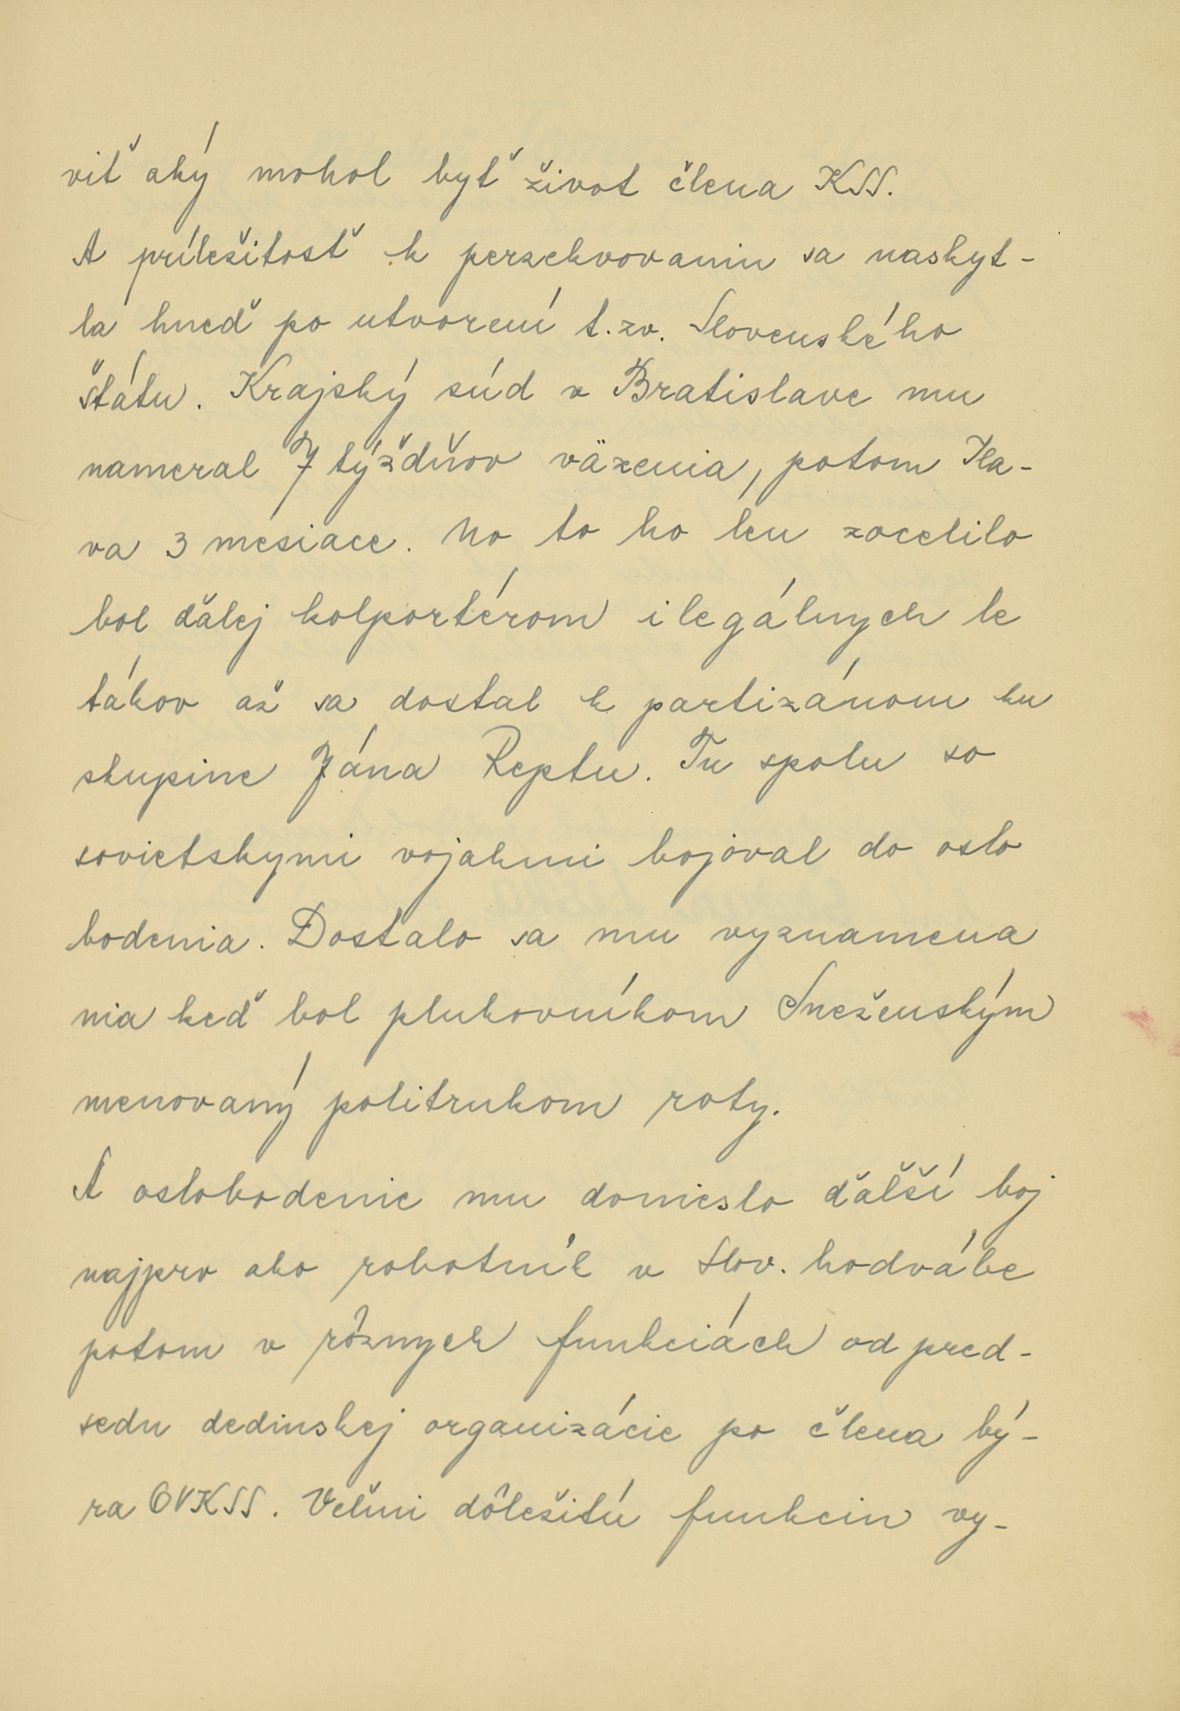 viť aký mohol byť život člena KSS.
A príležitosť k perzekvovaniu sa naskyt-
la hneď po utvorení t.zv. Slovenského
štátu. Krajský súd v Bratislave mu
nameral 7 týždňov väzenia, potom Ila-
va 3 mesiace. No to ho len zocelilo
bol ďalej kolportérom ilegálnych le
tákov až sa dostal k partizánom ku
skupine Jána Reptu. Tu spolu so
sovietskymi vojakmi bojoval do oslo
bodenia. Dostalo sa mu vyznamena
nia keď bol plukovníkom Sneženským
menovaný politrukom roty.
A oslobodenie mu donieslo ďalší boj
najprv ako robotník v Slov. hodvábe
potom v rôznych funkciách od pred-
sedu dedinskej organizácie po člena bý-
ra OVKSS. Veľmi dôležitú funkciu vy-